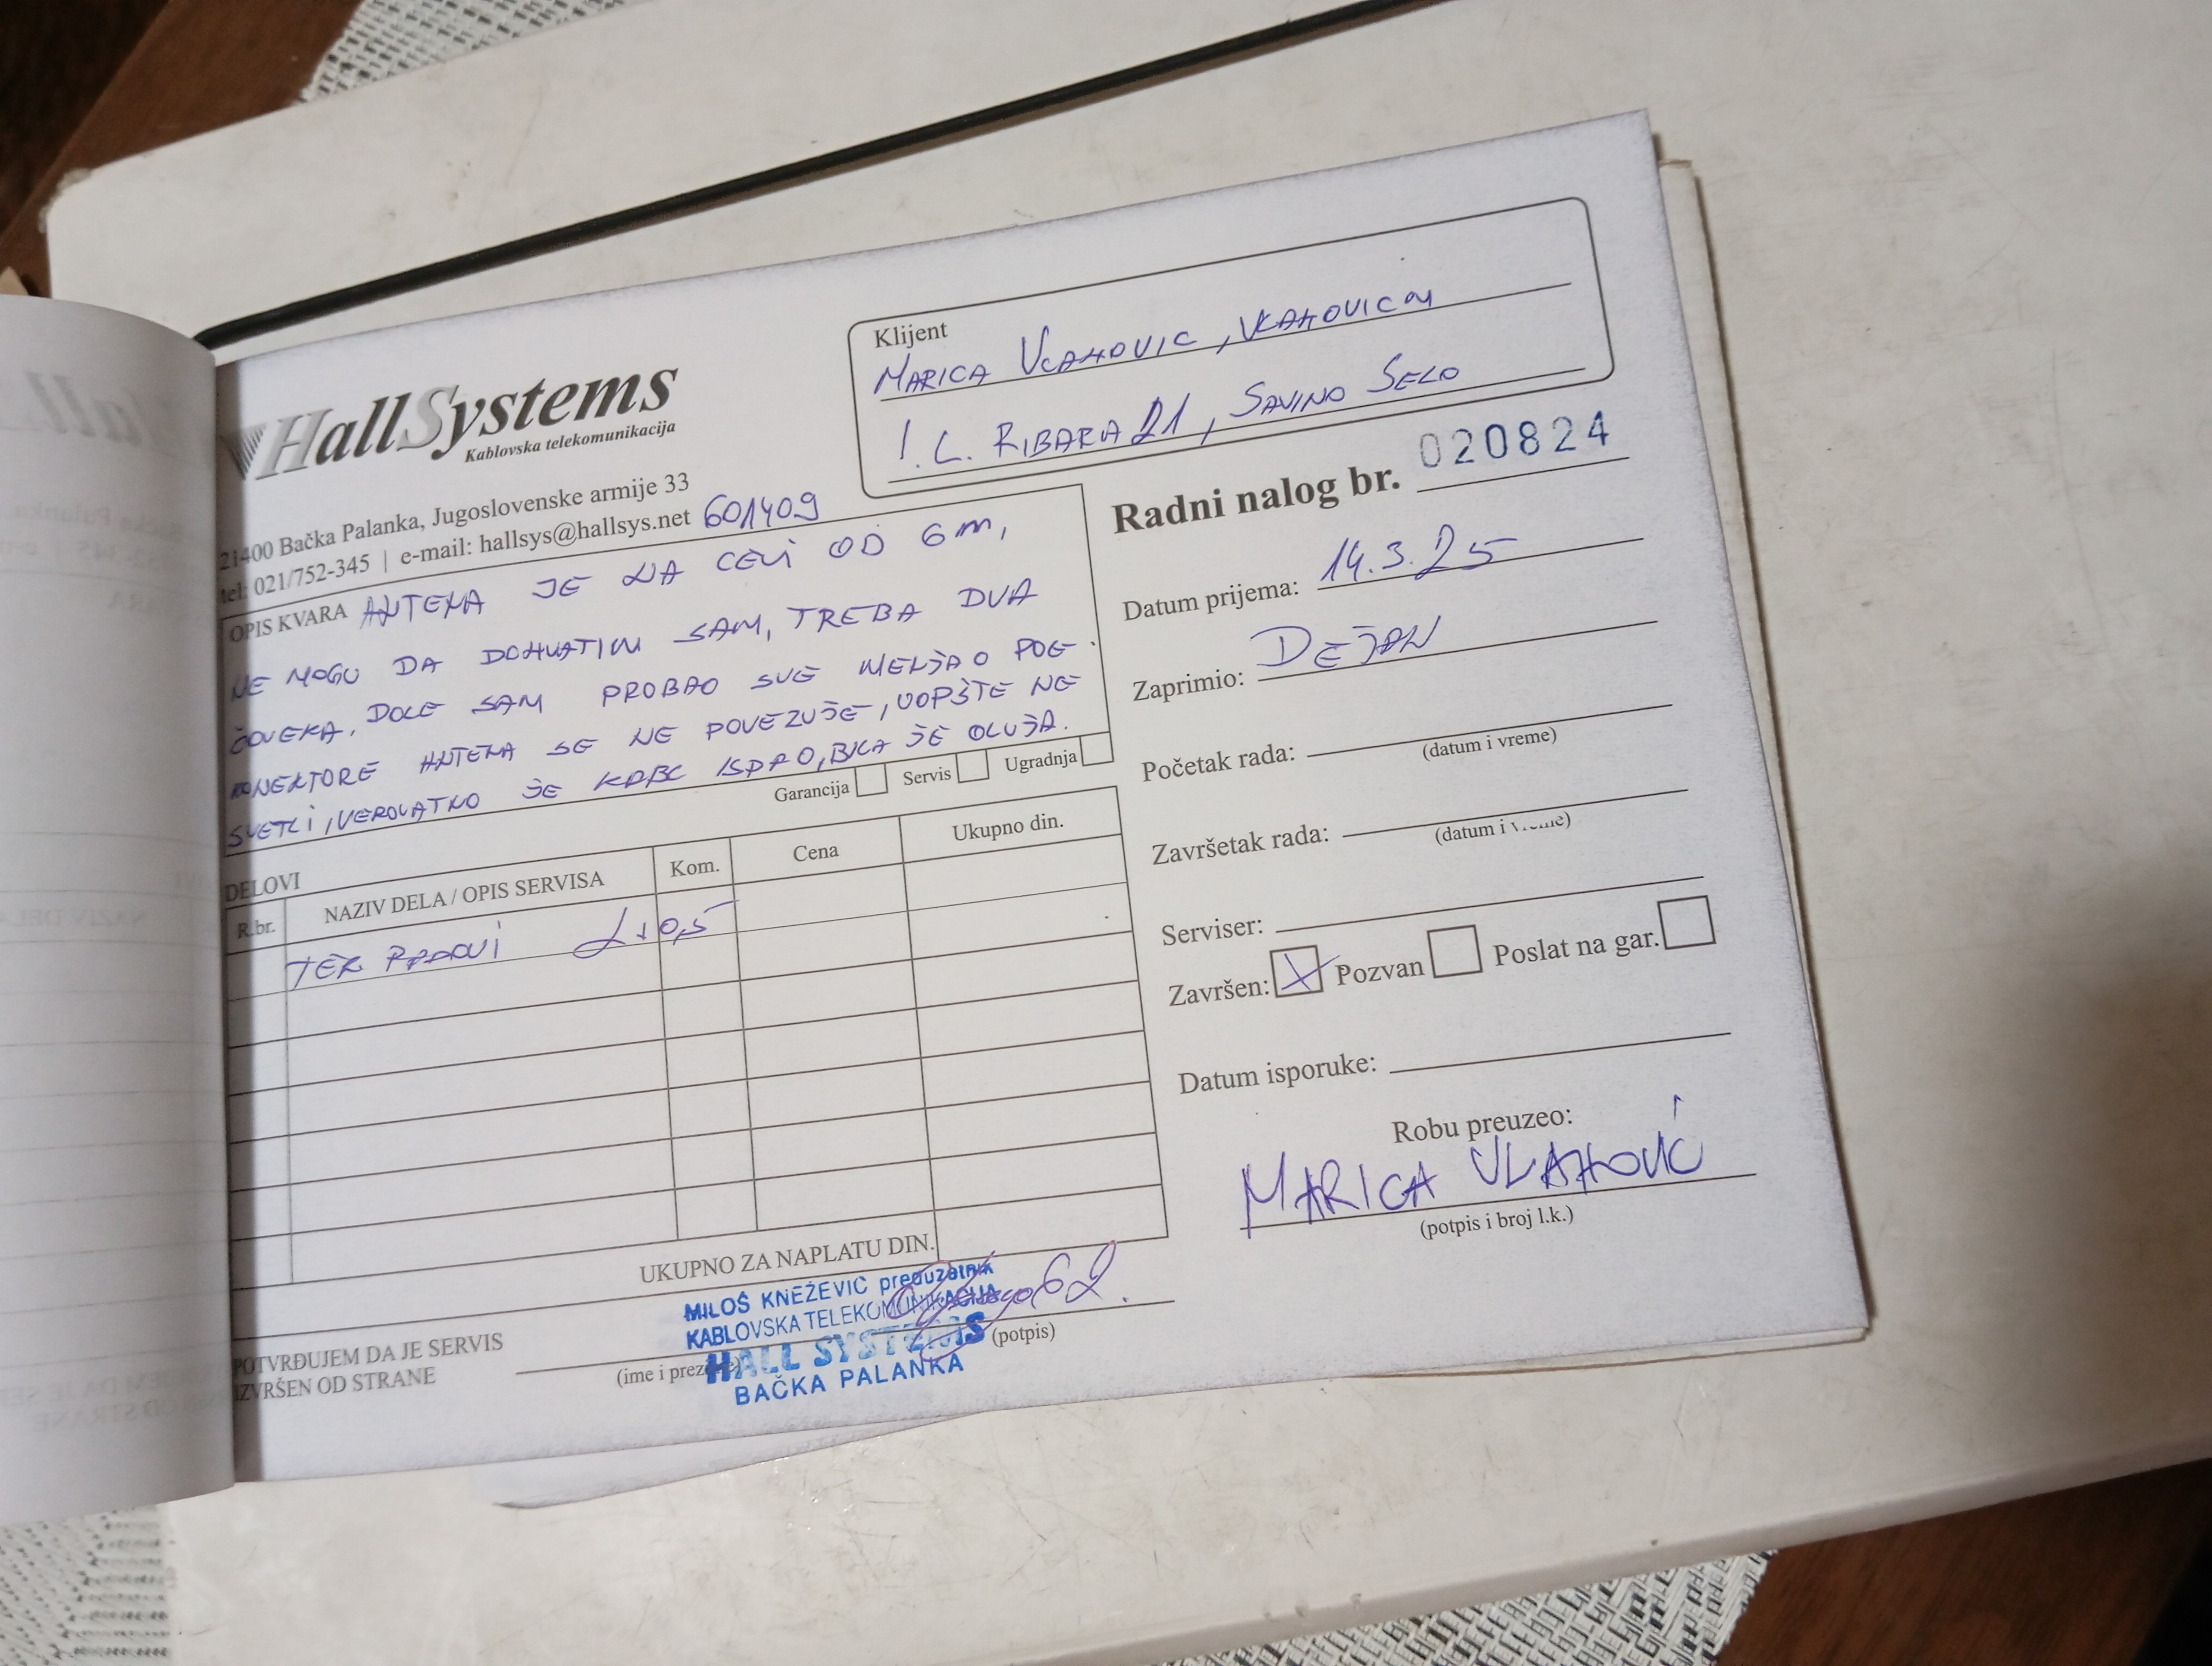 HallSystems
Kablovska telekomunikacija
21400 Bačka Palanka, Jugoslovenske armije 33
tel: 021/752-345 | e-mail: hallsys@hallsys.net 601409
Klijent
MARICA VLAHOVIC, VLAHOVICM
I. L. RIBARA 21, SAVINO SELO
Radni nalog br. 020824
Datum prijema: 14.3.25
Zaprimio: DEJAN
Početak rada:
(datum i vreme)
Završetak rada:
(datum i vreme)
Serviser:
Završen: X Pozvan Poslat na gar.
Datum isporuke:
Robu preuzeo:
MARICA VLAHOVIĆ
(potpis i broj l.k.)
OPIS KVARA ANTENA JE NA CEVI OD 6m,
NE MOGU DA DOHVATIM SAM, TREBA DVA
ČOVEKA, DOLE SAM PROBAO SVE MENJAO POE
KONEKTORE ANTENA SE NE POVEZUJE, UOPŠTE NE
SVETLI, VEROVATNO JE KABL ISPAO, BILA JE OLUJA.
Garancija Servis Ugradnja
DELOVI
R.br. NAZIV DELA / OPIS SERVISA Kom. Cena Ukupno din.
TER RADOVI 2+0,5
UKUPNO ZA NAPLATU DIN.
MILOŠ KNEŽEVIĆ preduzetnik
KABLOVSKA TELEKOMUNIKACIJA
HALL SYSTEMS
BAČKA PALANKA
POTVRĐUJEM DA JE SERVIS
IZVRŠEN OD STRANE
(ime i prezime)
(potpis)